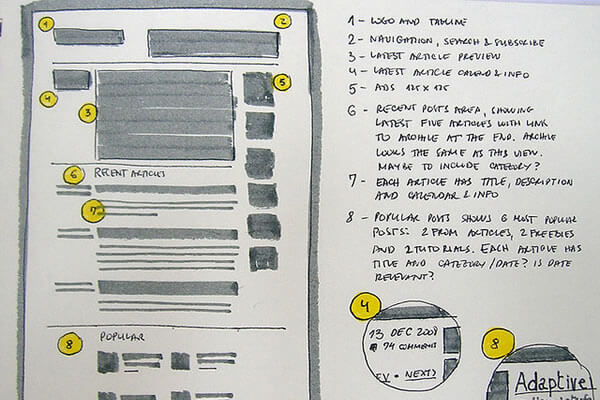 1
2
4
3
5
6
RECENT ARTICLES
7
8
POPULAR
1 - LOGO AND TAGLINE
2 - NAVIGATION, SEARCH & SUBSCRIBE
3 - LATEST ARTICLE PREVIEW
4 - LATEST ARTICLE CALEND & INFO
5 - ADS 125 X 125
6 - RECENT POSTS AREA, SHOWING
LATEST FIVE ARTICLES WITH LINK
TO ARCHIVE AT THE END. ARCHIVE
LOOKS THE SAME AS THIS VIEW.
MAYBE TO INCLUDE CATEGORY?
7 - EACH ARTICLE HAS TITLE, DESCRIPTION
AND CALENDAR & INFO
8 - POPULAR POSTS SHOWS 6 MOST POPULAR
POSTS: 2 FROM ARTICLES, 2 FREEBIES
AND 2 TUTORIALS. EACH ARTICLE HAS
TITLE AND CATEGORY/DATE? IS DATE
RELEVANT?
4
13 DEC 2009
74 COMMENTS
EV • NEXT>
8
Adaptive